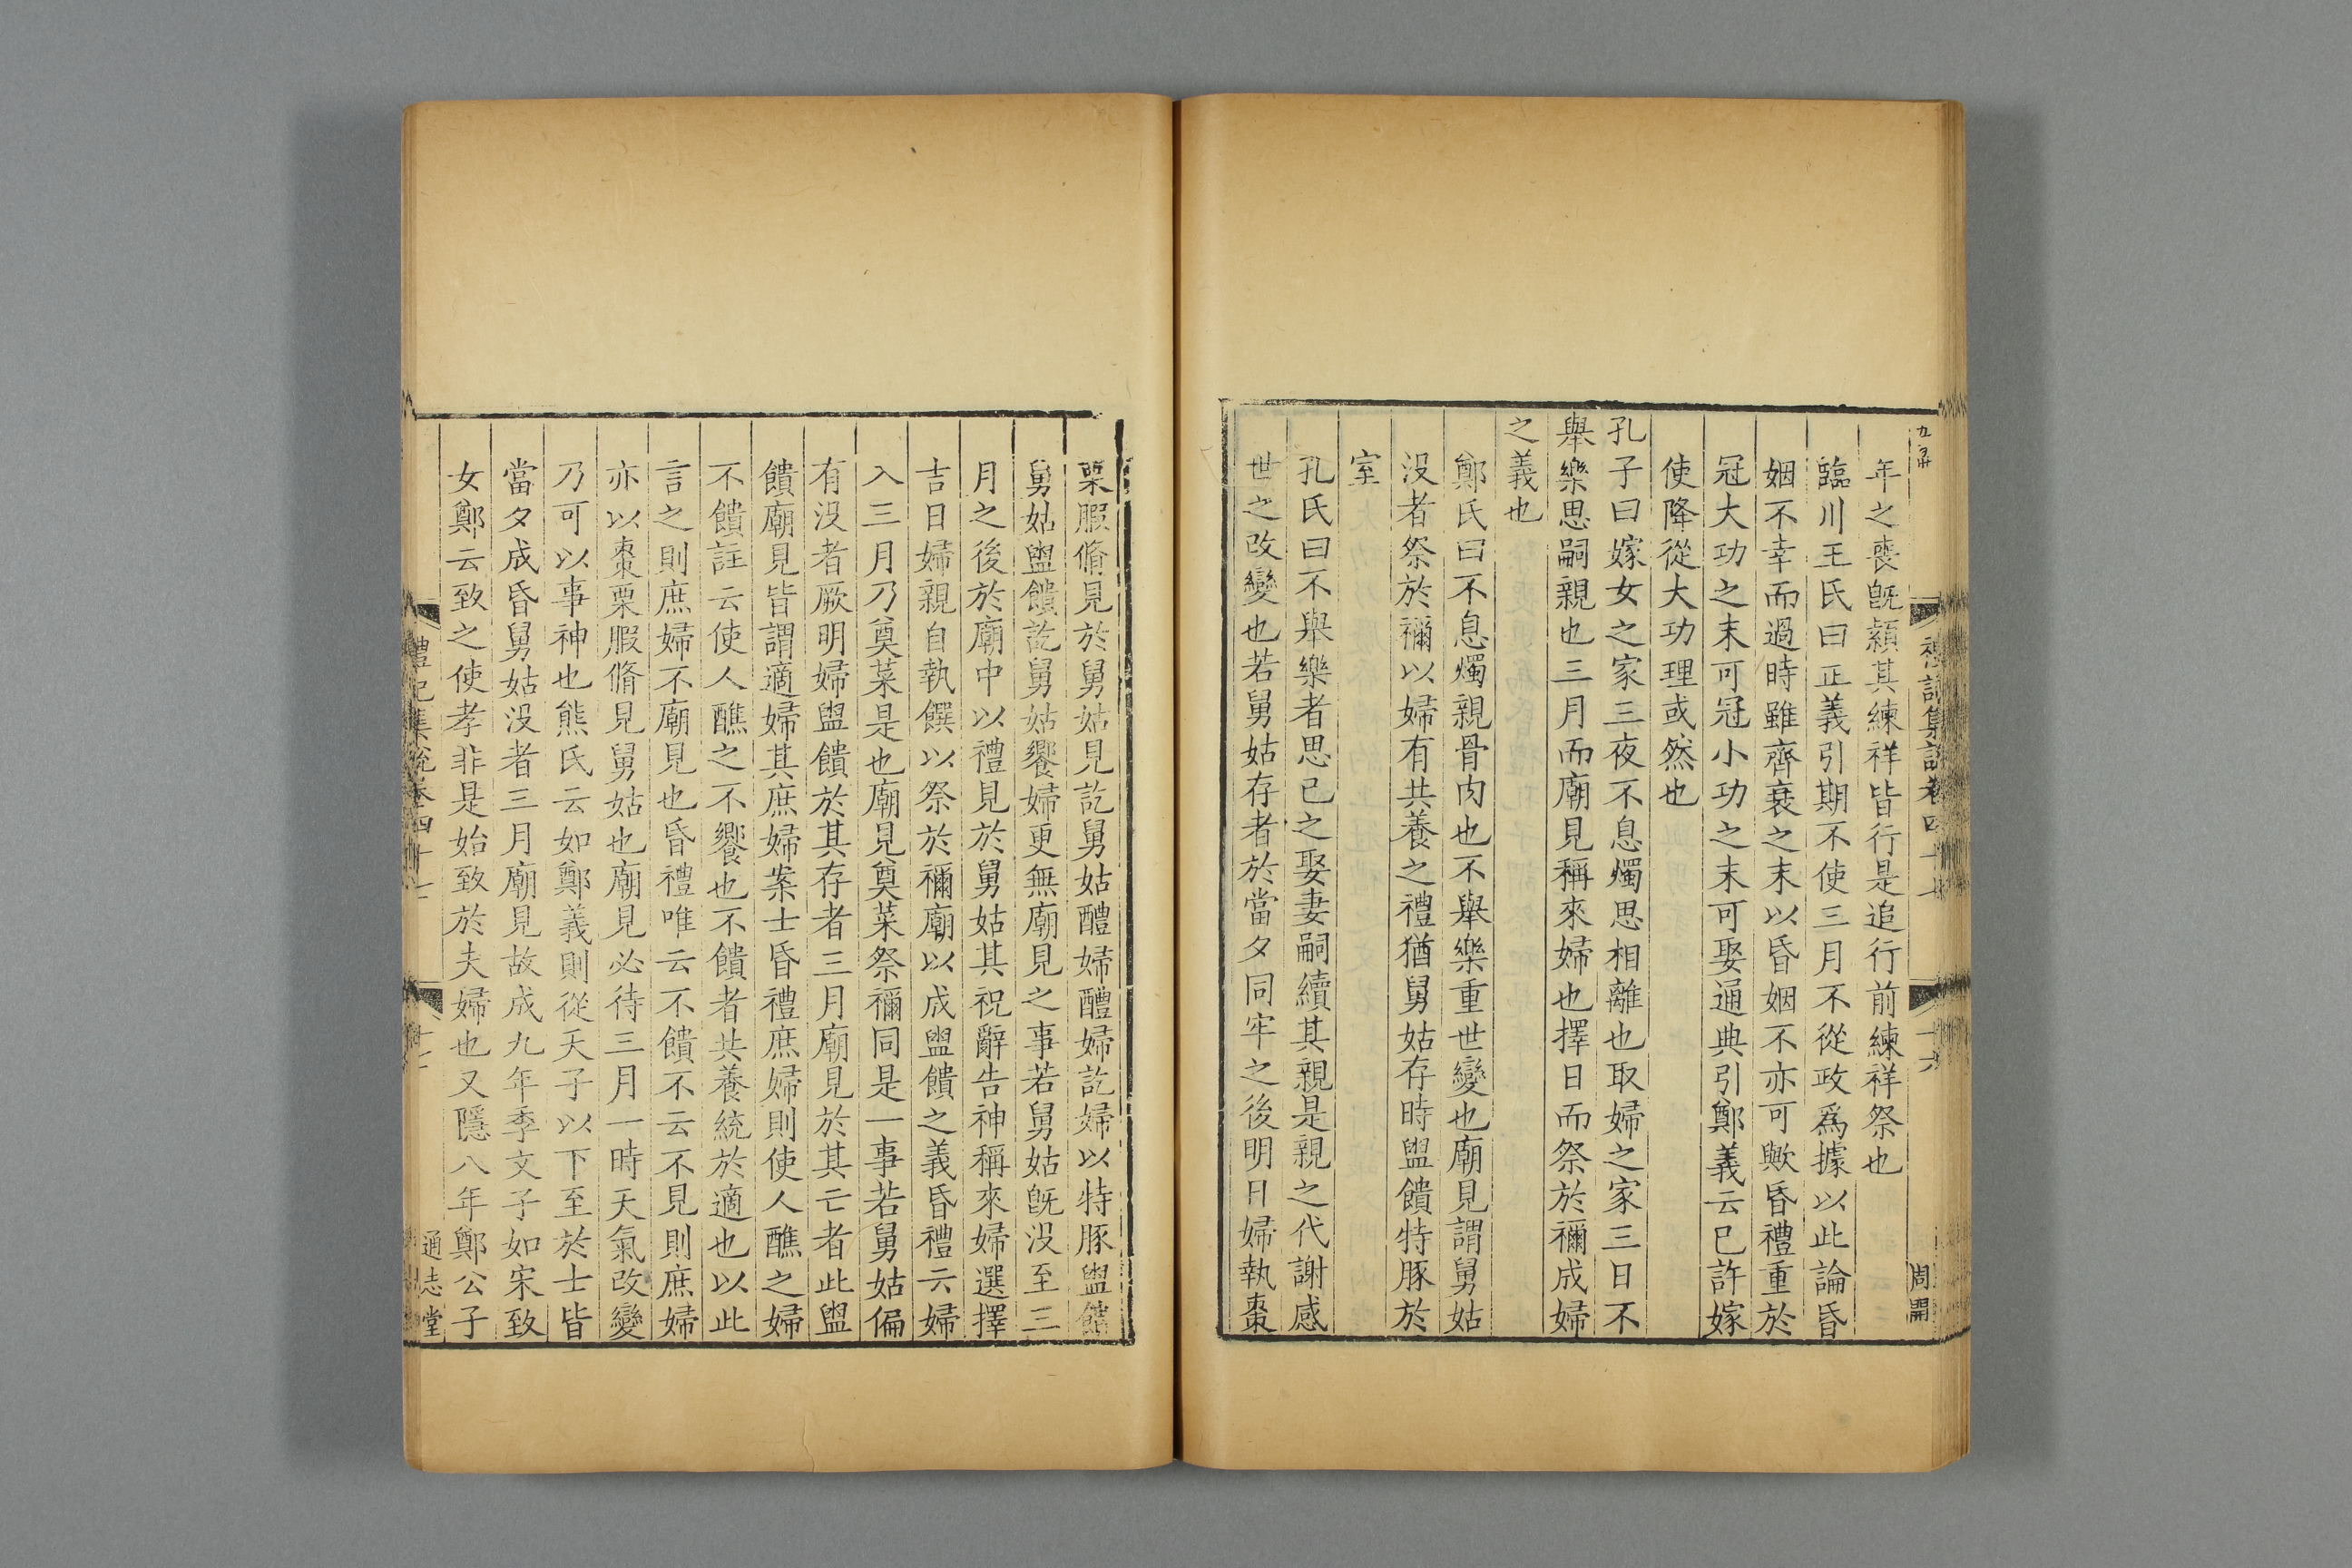 禮記集說卷四十七
十六
周開
年之喪旣顈其練祥皆行是追行前練祥祭也
臨川王氏曰正義引期不使三月不從政爲據以此論昏
姻不幸而過時雖齊衰之末以昏姻不亦可歟昏禮重於
冠大功之末可冠小功之末可娶通典引鄭義云已許嫁
使降從大功理或然也
孔子曰嫁女之家三夜不息燭思相離也取婦之家三日不
舉樂思嗣親也三月而廟見稱來婦也擇日而祭於禰成婦
之義也
鄭氏曰不息燭親骨肉也不舉樂重世變也廟見謂舅姑
没者祭於禰以婦有共養之禮猶舅姑存時盥饋特豚於
室
孔氏曰不舉樂者思己之娶妻嗣續其親是親之代謝感
世之改變也若舅姑存者於當夕同牢之後明日婦執棗
栗腶脩見於舅姑見訖舅姑醴婦醴婦訖婦以特豚盥饋
舅姑盥饋訖舅姑饗婦更無廟見之事若舅姑旣没至三
月之後於廟中以禮見於舅姑其祝辭告神稱來婦選擇
吉日婦親自執饌以祭於禰廟以成盥饋之義昏禮云婦
入三月乃奠菜是也廟見奠菜祭禰同是一事若舅姑偏
有没者厥明婦盥饋於其存者三月廟見於其亡者此盥
饋廟見皆謂適婦其庶婦案士昏禮庶婦則使人醮之婦
不饋註云使人醮之不饗也不饋者共養統於適也以此
言之則庶婦不廟見也昏禮唯云不饋不云不見則庶婦
亦以棗栗腶脩見舅姑也廟見必待三月一時天氣改變
乃可以事神也熊氏云如鄭義則從天子以下至於士皆
當夕成昏舅姑没者三月廟見故成九年季文子如宋致
女鄭云致之使孝非是始致於夫婦也又隱八年鄭公子
禮記集說卷四十七
通志堂